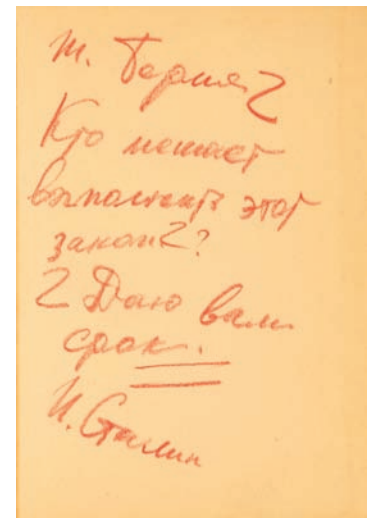 т. Берия
Кто мешает
выполнять этот
закон?
Даю вам
срок.
И. Сталин